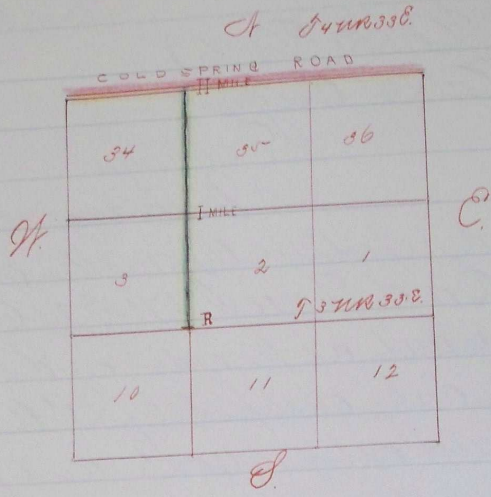 N T4NR33E.
COLD SPRING ROAD
II MILE
34 35 36
I MILE
W. E.
3 2 1
R T3NR33E.
10 11 12
S.